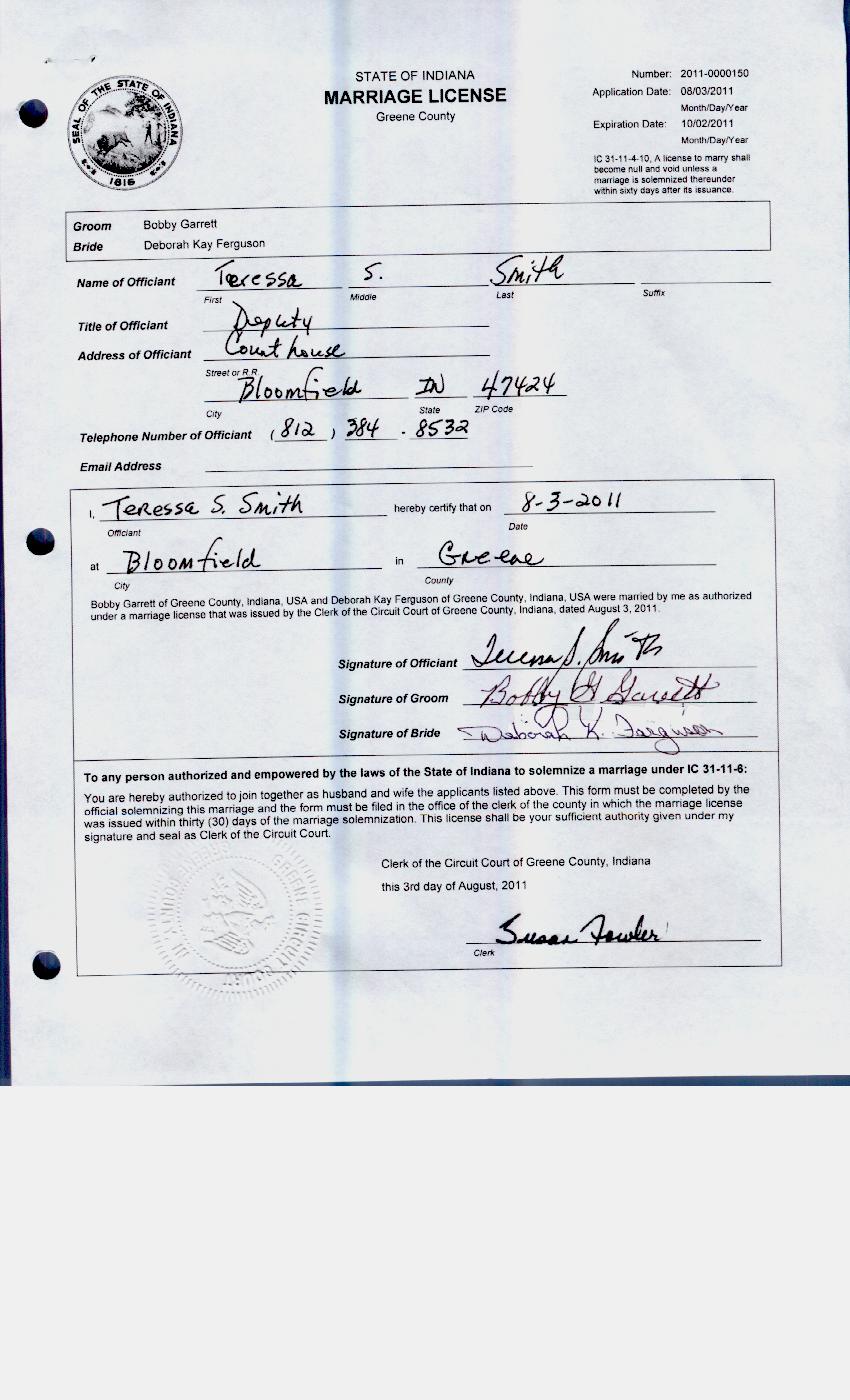 STATE OF INDIANA
MARRIAGE LICENSE
Greene County
Number: 2011-0000150
Application Date: 08/03/2011
Month/Day/Year
Expiration Date: 10/02/2011
Month/Day/Year
IC 31-11-4-10, A license to marry shall
become null and void unless a
marriage is solemnized thereunder
within sixty days after its issuance.
SEAL OF THE STATE OF INDIANA
1816
Groom Bobby Garrett
Bride Deborah Kay Ferguson
Name of Officiant Teressa S. Smith
First Middle Last Suffix
Title of Officiant Deputy
Address of Officiant Court house
Street or R.R.
Bloomfield IN 47424
City State ZIP Code
Telephone Number of Officiant (812) 384 - 8532
Email Address
I, Teressa S. Smith hereby certify that on 8-3-2011
Officiant Date
at Bloomfield in Greene
City County
Bobby Garrett of Greene County, Indiana, USA and Deborah Kay Ferguson of Greene County, Indiana, USA were married by me as authorized
under a marriage license that was issued by the Clerk of the Circuit Court of Greene County, Indiana, dated August 3, 2011.
Signature of Officiant Teressa S. Smith
Signature of Groom Bobby G Garrett
Signature of Bride Deborah K. Ferguson
To any person authorized and empowered by the laws of the State of Indiana to solemnize a marriage under IC 31-11-6:
You are hereby authorized to join together as husband and wife the applicants listed above. This form must be completed by the
official solemnizing this marriage and the form must be filed in the office of the clerk of the county in which the marriage license
was issued within thirty (30) days of the marriage solemnization. This license shall be your sufficient authority given under my
signature and seal as Clerk of the Circuit Court.
Clerk of the Circuit Court of Greene County, Indiana
this 3rd day of August, 2011
Susan Fowler
Clerk
GREENE CIRCUIT COURT